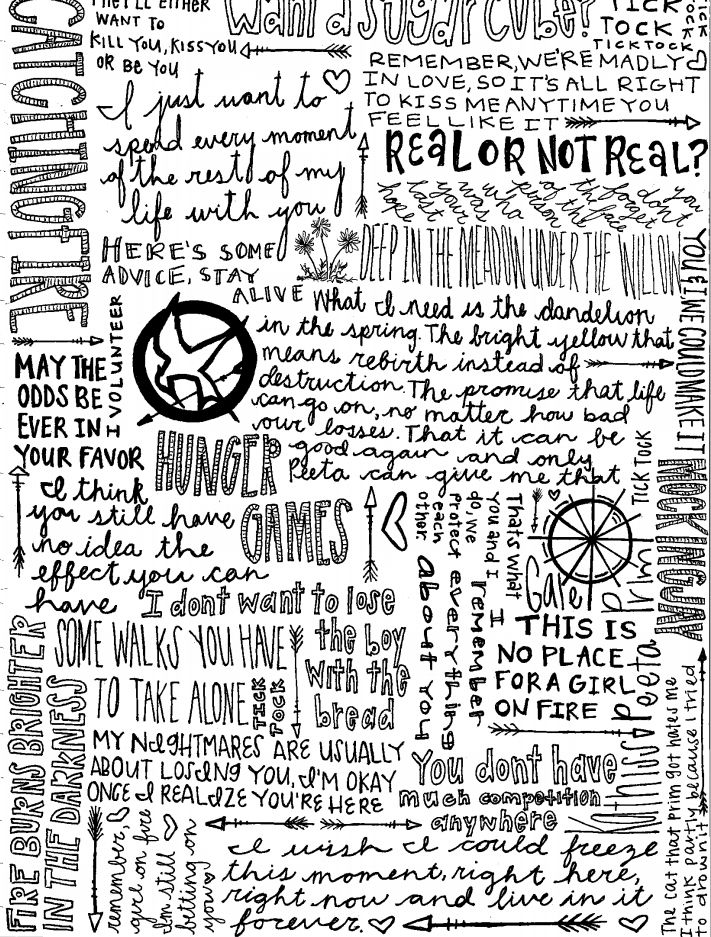 THEY'LL EITHER
WANT TO
KILL YOU, KISS YOU
OR BE YOU
Want a Sugar Cube?
TICK
TOCK
TICKTOCK
TICK
TOCK
CATCHING FIRE
REMEMBER, WE'RE MADLY
IN LOVE, SO IT'S ALL RIGHT
TO KISS ME ANYTIME YOU
FEEL LIKE IT
I just want to
spend every moment
of the rest of my
life with you
REAL OR NOT REAL?
HERE'S SOME
ADVICE, STAY
ALIVE
DEEP IN THE MEADOW UNDER THE WILLOW
YOU & I, WE COULD MAKE IT
What I need is the dandelion
in the spring. The bright yellow that
means rebirth instead of
destruction. The promise that life
can go on, no matter how bad
our losses. That it can be
good again and only
Peeta can give me that
I VOLUNTEER
MAY THE
ODDS BE
EVER IN
YOUR FAVOR
HUNGER
GAMES
TICK TOCK
MOCKINGJAY
I think
you still have
no idea the
effect you can
have
That's what
you and I
do, we
protect
each
other.
I
remember
everything
about you
Gale
prim
peeta
I dont want to lose
the boy
with the
bread
THIS IS
NO PLACE
FOR A GIRL
ON FIRE
SOME WALKS YOU HAVE
TO TAKE ALONE
TICK
TOCK
FIRE BURNS BRIGHTER
IN THE DARKNESS
MY NIGHTMARES ARE USUALLY
ABOUT LOSING YOU, I'M OKAY
ONCE I REALIZE YOU'RE HERE
You dont have
much competition
anywhere
The cat that Prim got hates me
I think partly because I tried
to drown it
remember,
girl on fire
I'm still
betting on
you
I wish I could freeze
this moment, right here,
right now and live in it
forever.